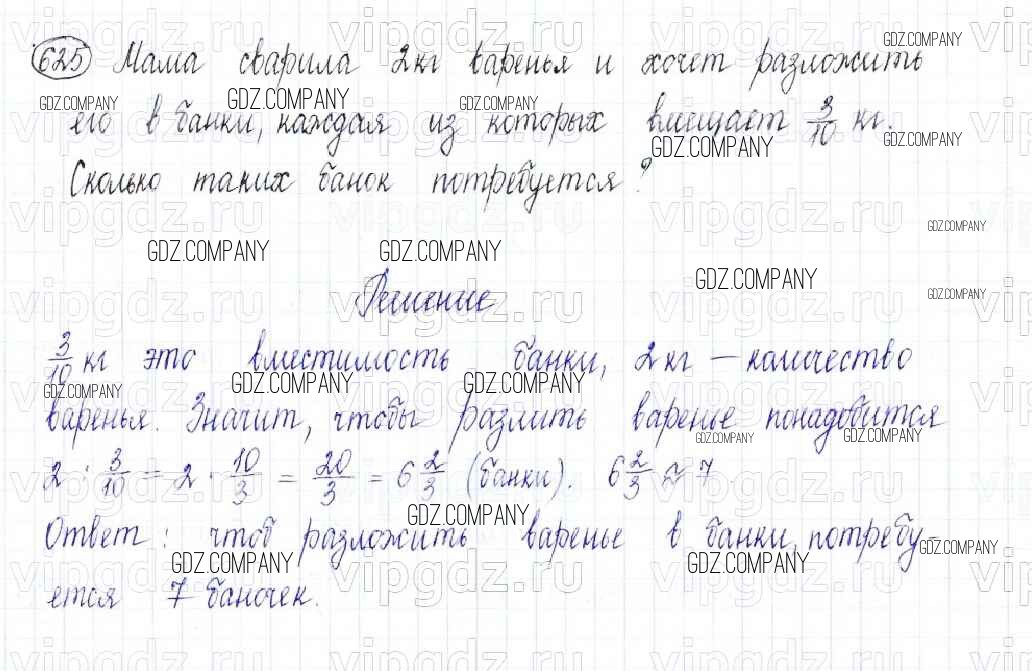 625 Мама сварила 2кг варенья и хочет разложить
его в банки, каждая из которых вмещает 3/10 кг.
Сколько таких банок потребуется?
Решение
3/10 кг это вместимость банки, 2кг — количество
варенья. Значит, чтобы разлить варенье понадобится
2 : 3/10 = 2 · 10/3 = 20/3 = 6 2/3 (банки). 6 2/3 ≈ 7.
Ответ: чтоб разложить варенье в банки, потребу-
ется 7 баночек.